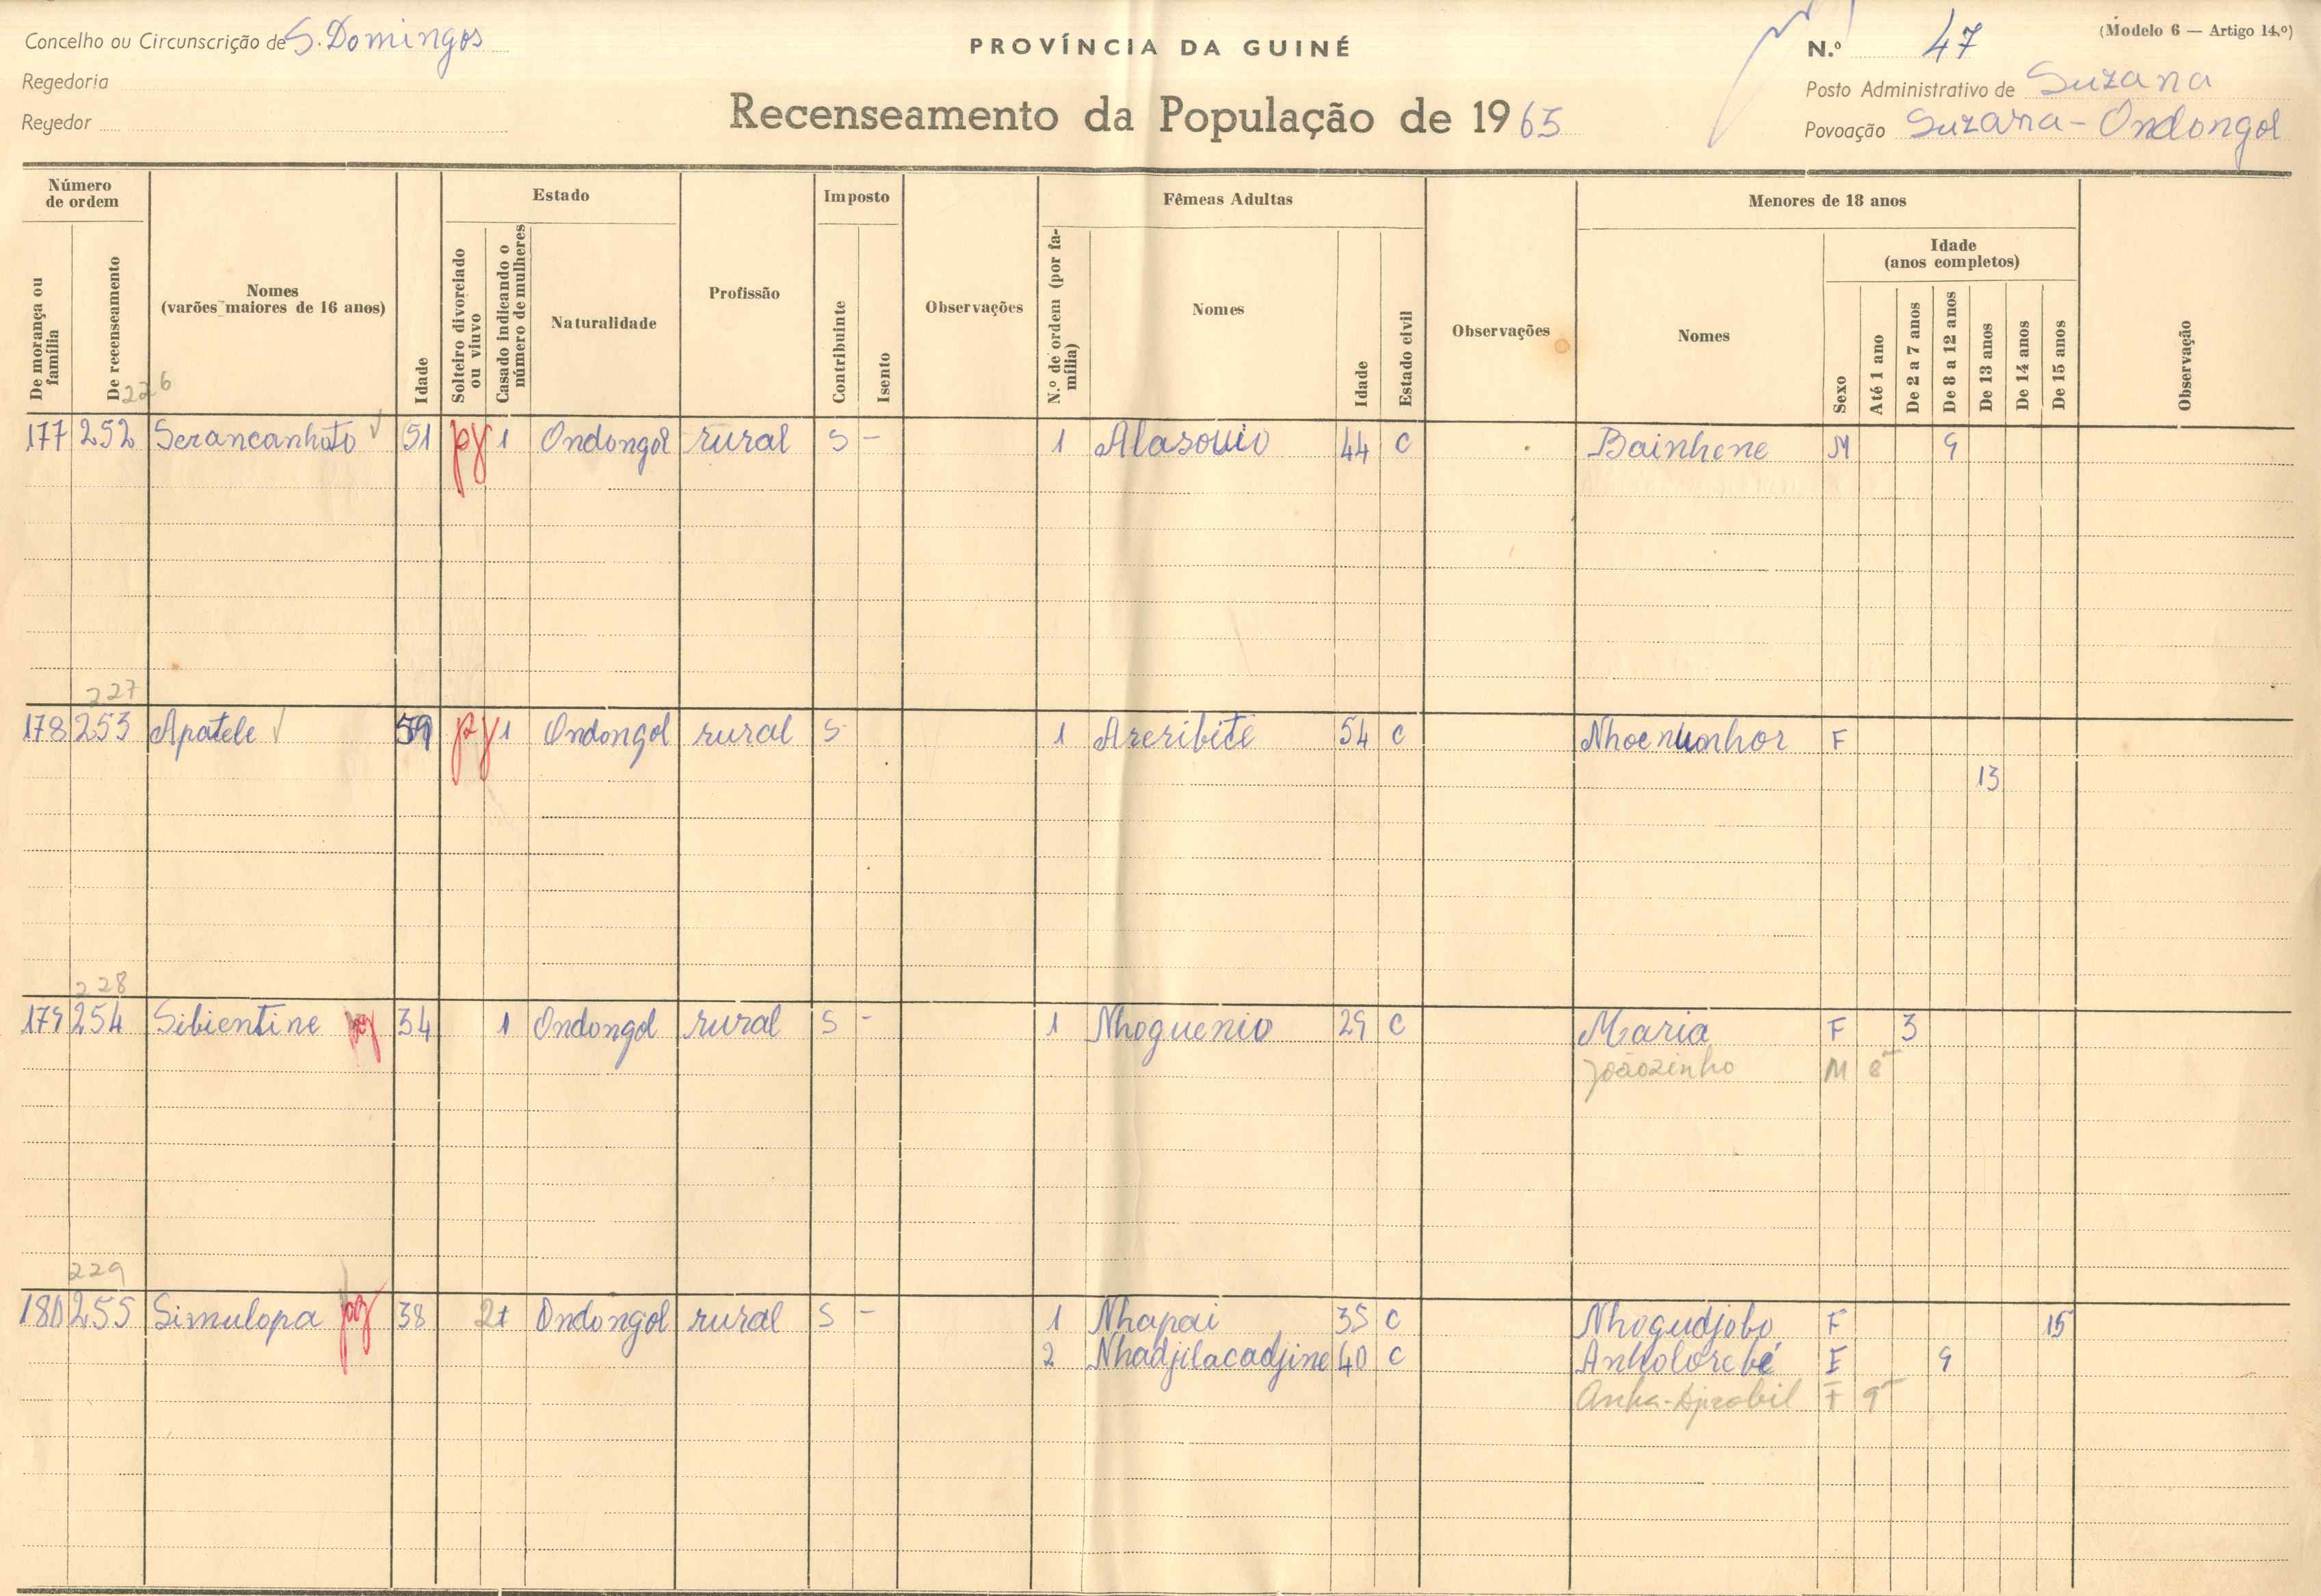 Concelho ou Circunscrição de S. Domingos
Regedoria
Regedor
PROVÍNCIA DA GUINÉ
Recenseamento da População de 1965
(Modelo 6 — Artigo 14.º)
N.º 47
Posto Administrativo de Suzana
Povoação Suzana - Ondongol
Número de ordem
De morança ou família
De recenseamento
Nomes (varões maiores de 16 anos)
Idade
Estado
Solteiro divorciado ou viuvo
Casado indicando o número de mulheres
Naturalidade
Profissão
Imposto
Contribuinte
Isento
Observações
Fêmeas Adultas
N.º de ordem (por família)
Nomes
Idade
Estado civil
Observações
Menores de 18 anos
Nomes
Sexo
Idade (anos completos)
Até 1 ano
De 2 a 7 anos
De 8 a 12 anos
De 13 anos
De 14 anos
De 15 anos
Observação
226
177 252 Serancanhoto 51 pg 1 Ondongol rural S - 1 Alasouio 44 C Bainhene M 9
227
178 253 Apatele pg 1 Ondongol rural S - 1 Areribite 54 C F
13
228
179 254 Sibientine pg 34 1 Ondongol rural S - 1 Nhoguenio 29 C Maria F 3
Joãozinho M 8
229
180 255 Simulopa pg 38 Ondongol rural S - 1 Nhapai 35 C Nhogudjobo F 15
2 Nhadjilacadjine 40 C Anholorebé F 9
F 9